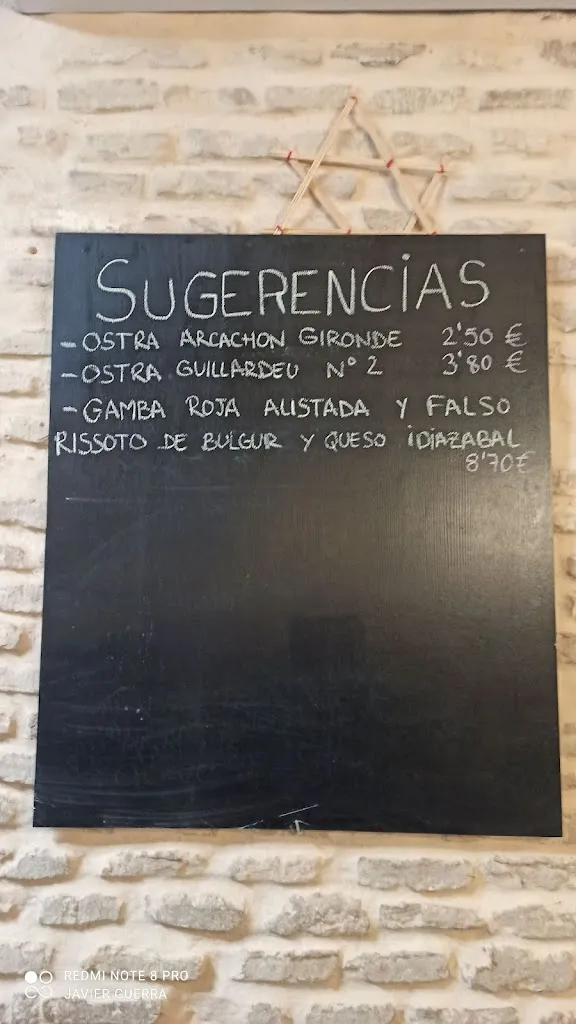 SUGERENCIAS
- OSTRA ARCACHON GIRONDE 2'50 €
- OSTRA GUILLARDEU Nº 2 3'80 €
- GAMBA ROJA ALISTADA Y FALSO
RISSOTO DE BULGUR Y QUESO IDIAZABAL
8'70€
REDMI NOTE 8 PRO
JAVIER GUERRA